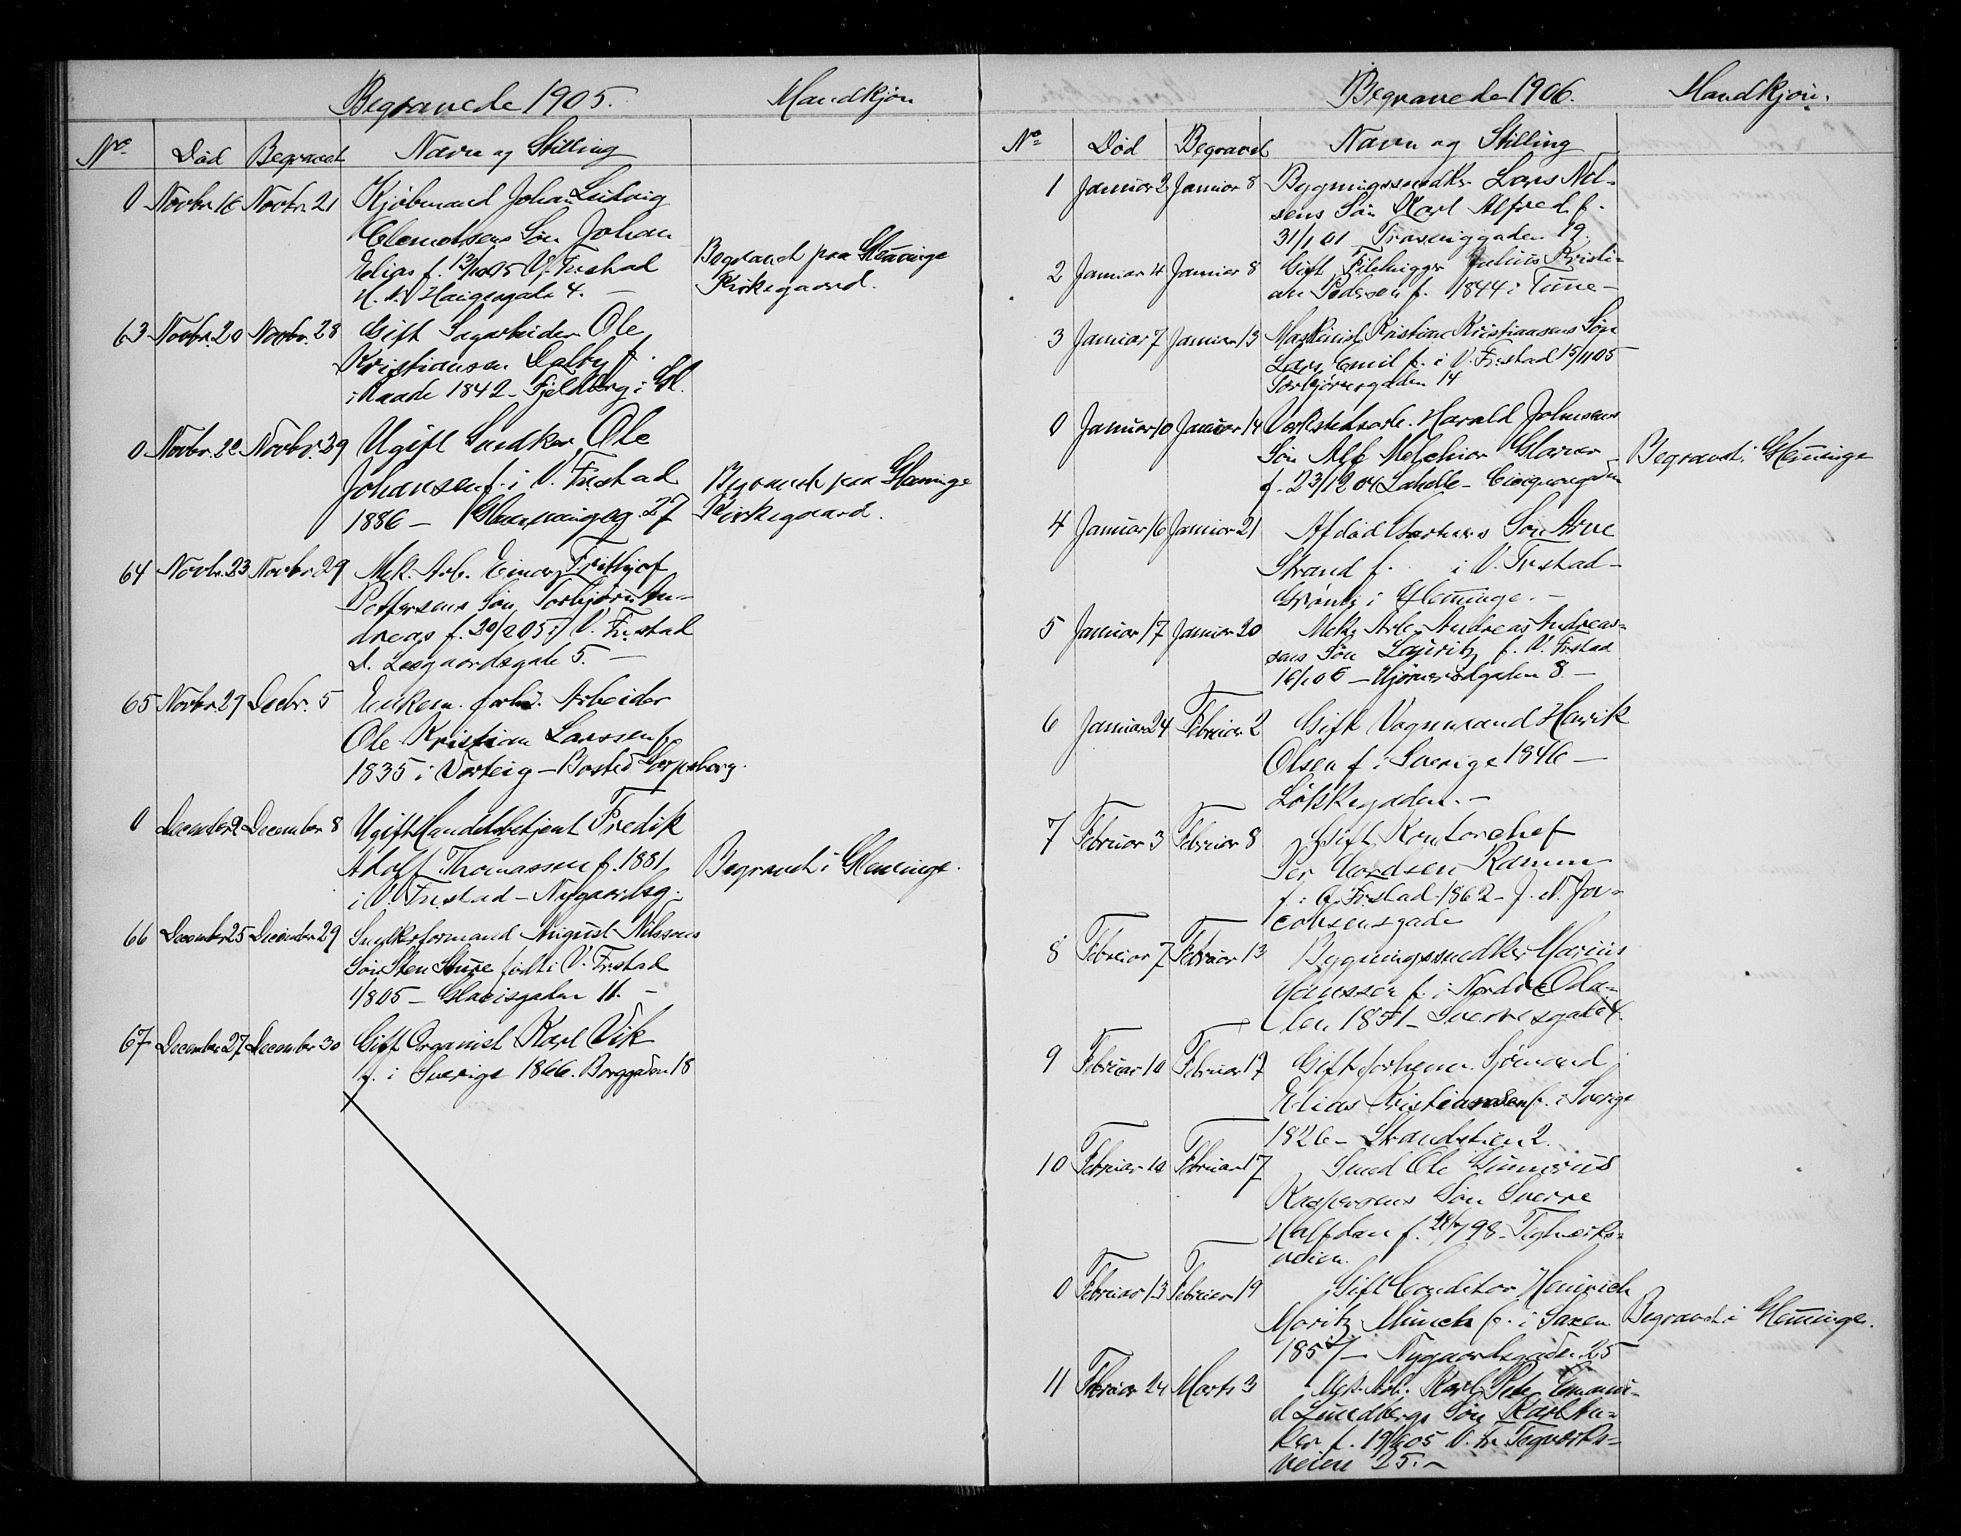 Begravede 1905. Mandkjøn
No. Død Begravet Navn og Stilling
0 Novbr. 16 Novbr. 21 Kjøbmand Johan Ludvig
Clemetsens Søn Johan
Elias f. 13/10 05 V. Frestad Begravet paa Glemminge
N. Haugesgade 4. — Kirkegaard.
63 Novbr. 20 Novbr. 28 Gift Sagarbeider Ole
Kristiansen Dalby f.
i Raade 1842 - Fjeldberg i Gl.
0 Novbr. 22 Novbr. 29 Ugift Snedker Ole
Johansen f. i V. Frestad Begravet paa Glemminge
1886 — Glemmingeg. 27 Kirkegaard.
64 Novbr. 23 Novbr. 29 Mek. Arb. Einar Frithjof
Pettersens Søn Torbjørn An-
dreas f. 20/2 05 i V. Frestad
d. Lesgaardsgade 5. —
65 Novbr. 29 Decbr. 5 Enkem. forhv. Arbeider
Ole Kristian Larssen f.
1835 i Varteig — Bosted Sarpsborg.
0 December 2 December 8 Ugift Handelsbetjent Fredik
Adolf Thomassen f. 1881 Begravet i Glemminge.
i V. Frestad — Nygaardsg.
66 December 25 December 29 Snedkerformand August Nilssens
Søn Sten Sture født i V. Frestad
1/8 05 — Glacisgaden 11. —
67 December 27 December 30 Gift Organist Karl Vik
f. i Sverige 1866. Borggaden 18
Begravede 1906. Mandkjøn.
No. Død Begravet Navn og Stilling
1 Januar 2 Januar 8 Bygningssnedker Lars Nil-
sens Søn Karl Alfred f.
31/1 01 Trosviggaden 19.
2 Januar 4 Januar 8 Gift Filehugger Julius Kristi-
an Pedersen f. 1844 i Tune —
3 Januar 7 Januar 13 Maskinist Kristian Kristiansens Søn
Lars Emil f. i V. Frestad 15/11 05
Torbjørnsgaden 14
0 Januar 10 Januar 14 Værkstedsarb. Harald Johnsens
Søn Alf Melchior Glarner Begravet i Glemminge
f. 23/12 04 Labelle - Cicignongaden
4 Januar 16 Januar 21 Afdød Søn Arne
Strand f. i V. Frestad —
Grønli i Glemminge. —
5 Januar 17 Januar 20 Mek. Arb. Andreas Andreas-
sens Søn Lauritz f. V. Frestad
16/1 06 — Hjørnerødgaden 8. —
6 Januar 24 Februar 2 Gift Vognmand Henrik
Olsen f. i Sverige 1846 —
Løkkegaden. —
7 Februar 3 Februar 8 Gift Kontorchef
Per Nordsen Ramm
f. i G. Frestad 1862 — J. N. Ja-
cobsensgade
8 Februar 7 Februar 13 Bygningssnedker Marius
Hanssen f. i Nordre Oda-
len 1871 — Sverresgade 4.
9 Februar 10 Februar 17 Gift forhenv. Sømand
Elias Kristiansen f. i Sverige
1826 — Strandstien 2.
10 Februar 10 Februar 17 Smed Ole Gunerius
Kaspersens Søn Sverre
Halfdan f. 98 — Teglverks-
veien.
0 Februar 13 Februar 19 Gift Conditor Heinrich
Moritz Münch f. i Saxen Begravet i Glemminge.
1857 — Nygaardsgaden 25
11 Februar 24 Marts 3 Mek. Arb. Karl Peter Emanu-
el Lundbergs Søn Karl An-
ker f. 19/6 05 V. Fr. Tegværks-
veien 25. —